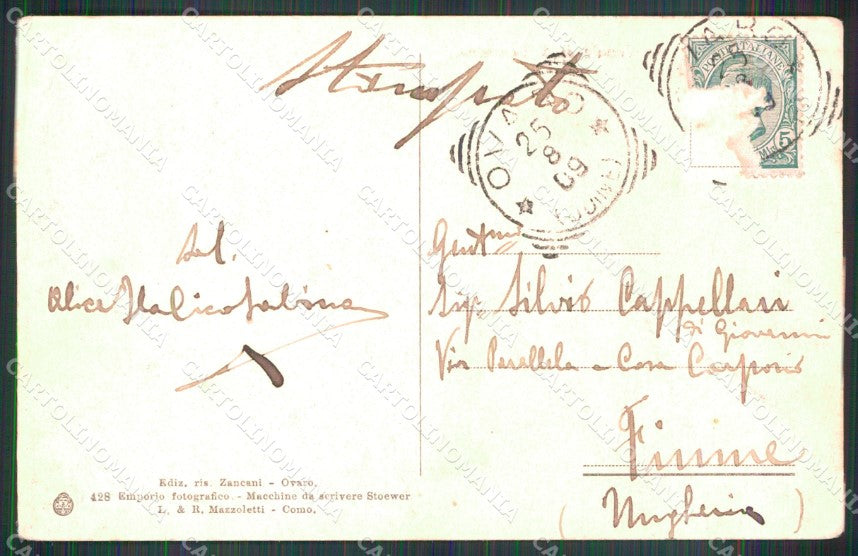 Stampato
OVARO
25
8
09
(UDINE)
POSTE ITALIANE
5
Sal.
Alice Italico Sabina
Gent.mo
Sig. Silvio Cappellari
di Giovanni
Via Parallela - Casa
Fiume
(Ungheria)
Ediz. ris. Zancani - Ovaro.
428 Emporio fotografico - Macchine da scrivere Stoewer
L. & R. Mazzoletti - Como.
CARTOLINOMANIA